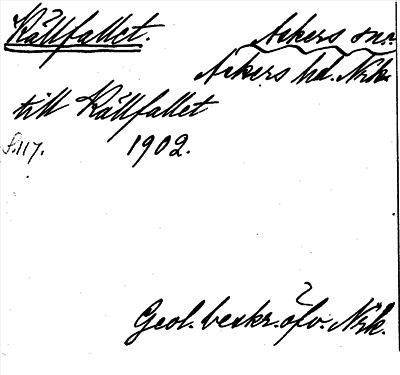 Källfallet. Askers sn.
Askers hd. Nrk.
till Källfallet
S.117. 1902.
Geol. beskr. öfv. Nrk.